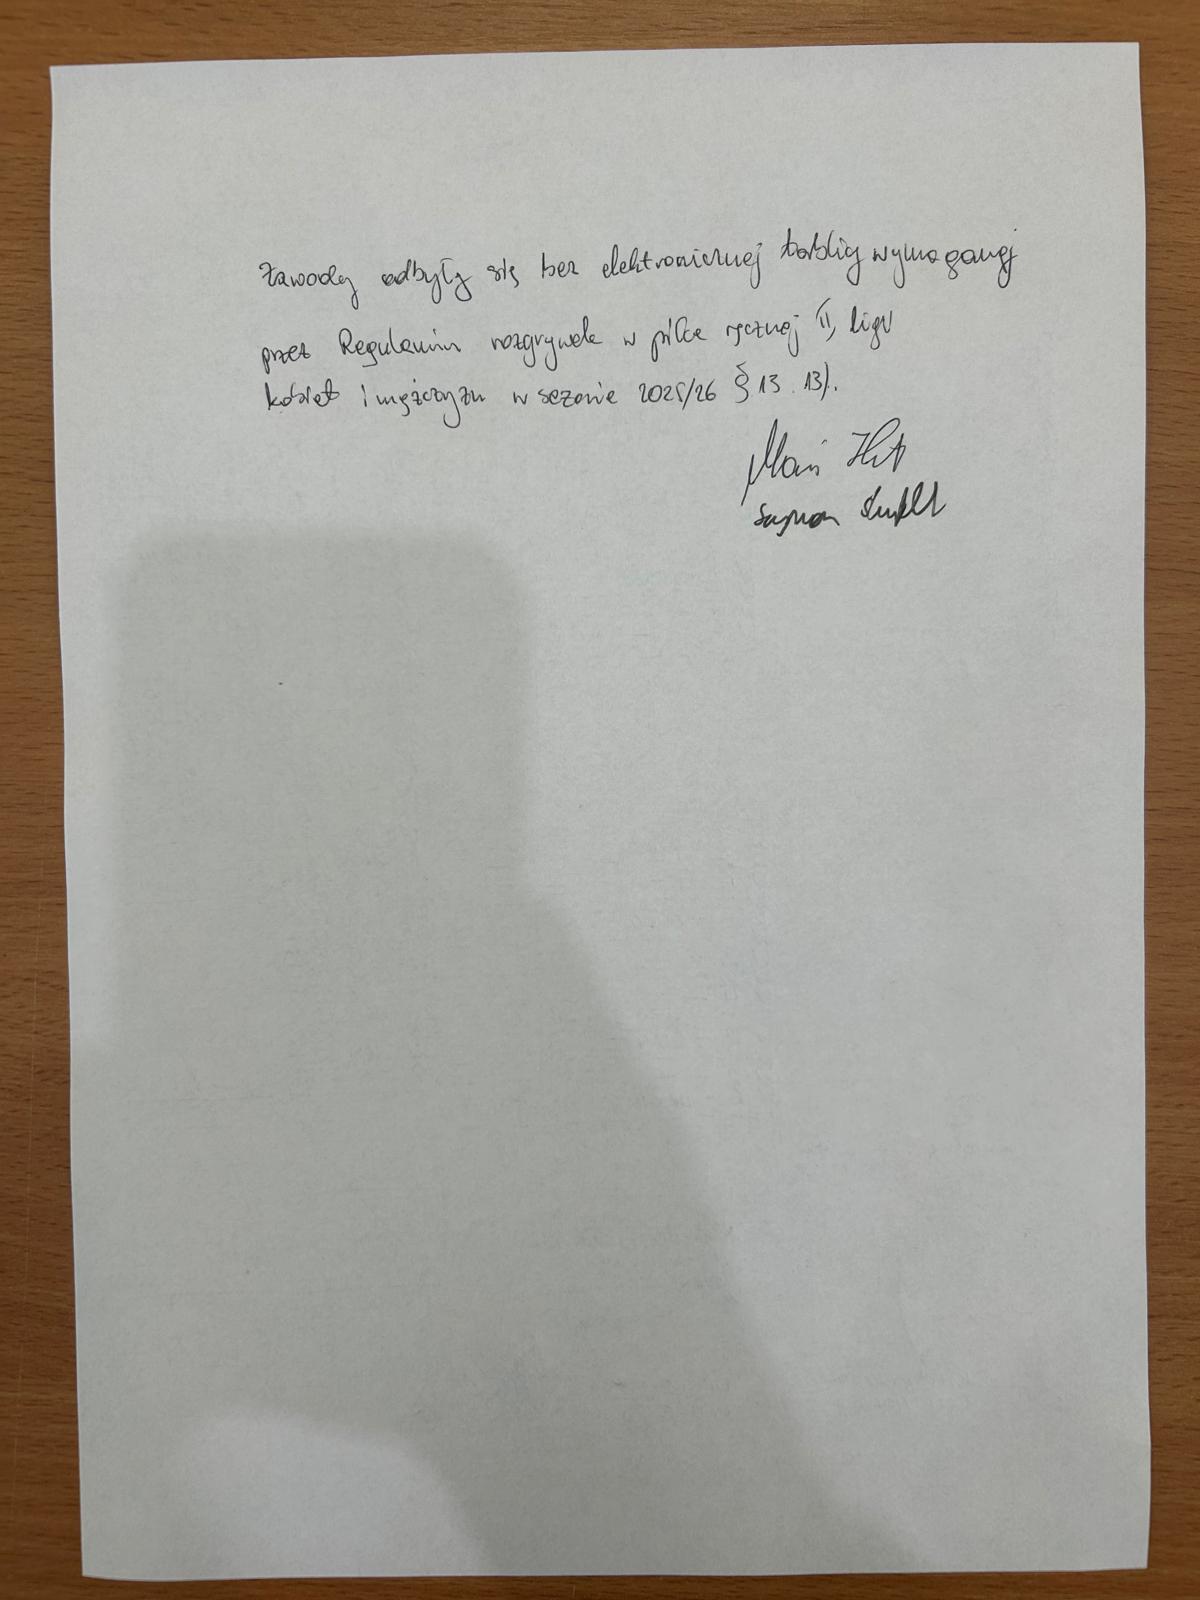 Zawody odbyły się bez elektronicznej tablicy wymaganej
przez Regulamin rozgrywek w piłce ręcznej II ligi
kobiet i mężczyzn w sezonie 2025/26 § 13. 13).
Szymon